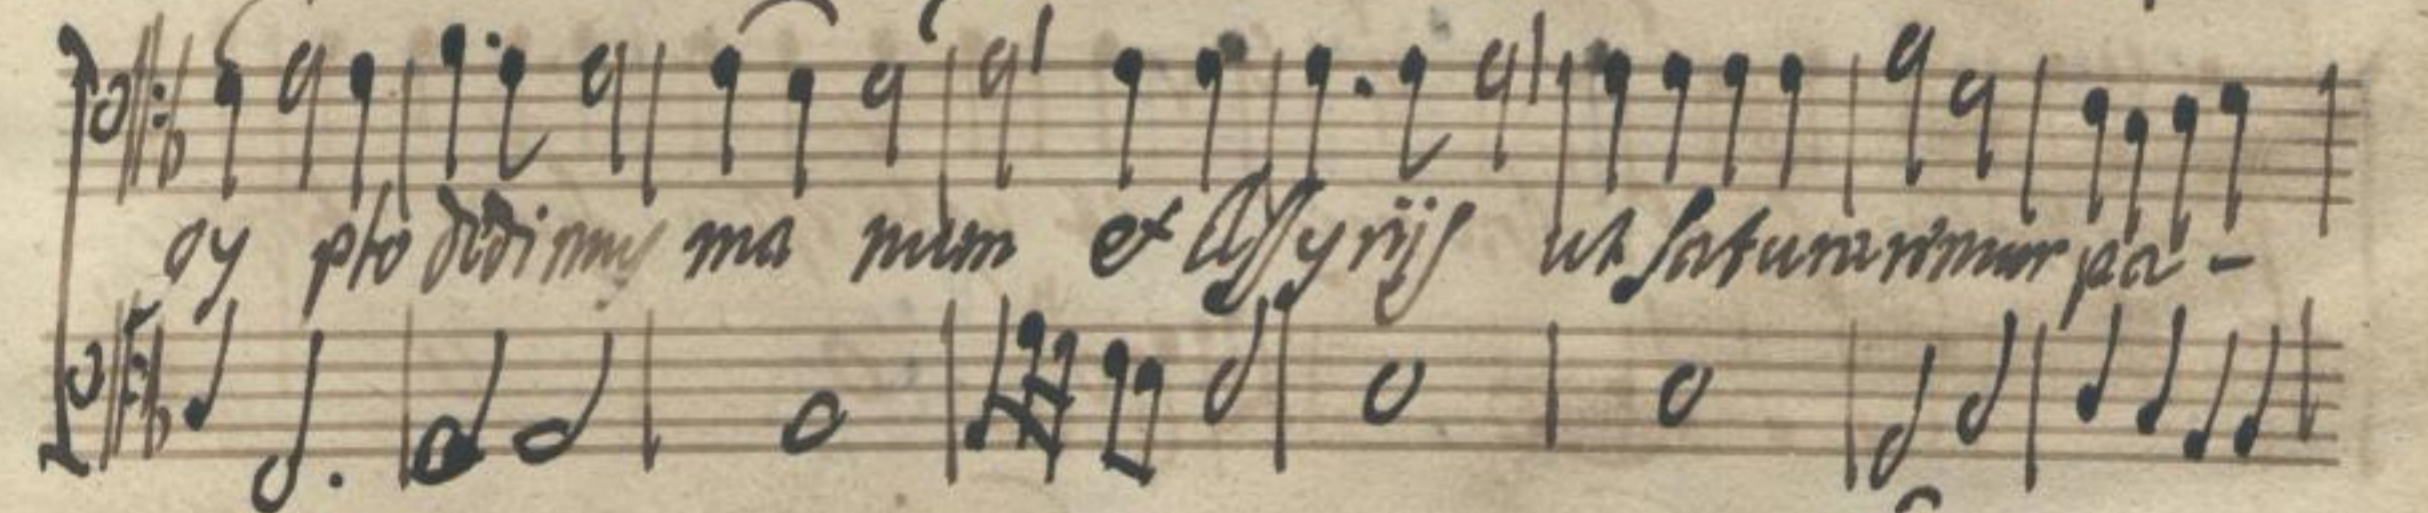 gy pto dedimus ma num et Assyrijs ut saturaremur pa-